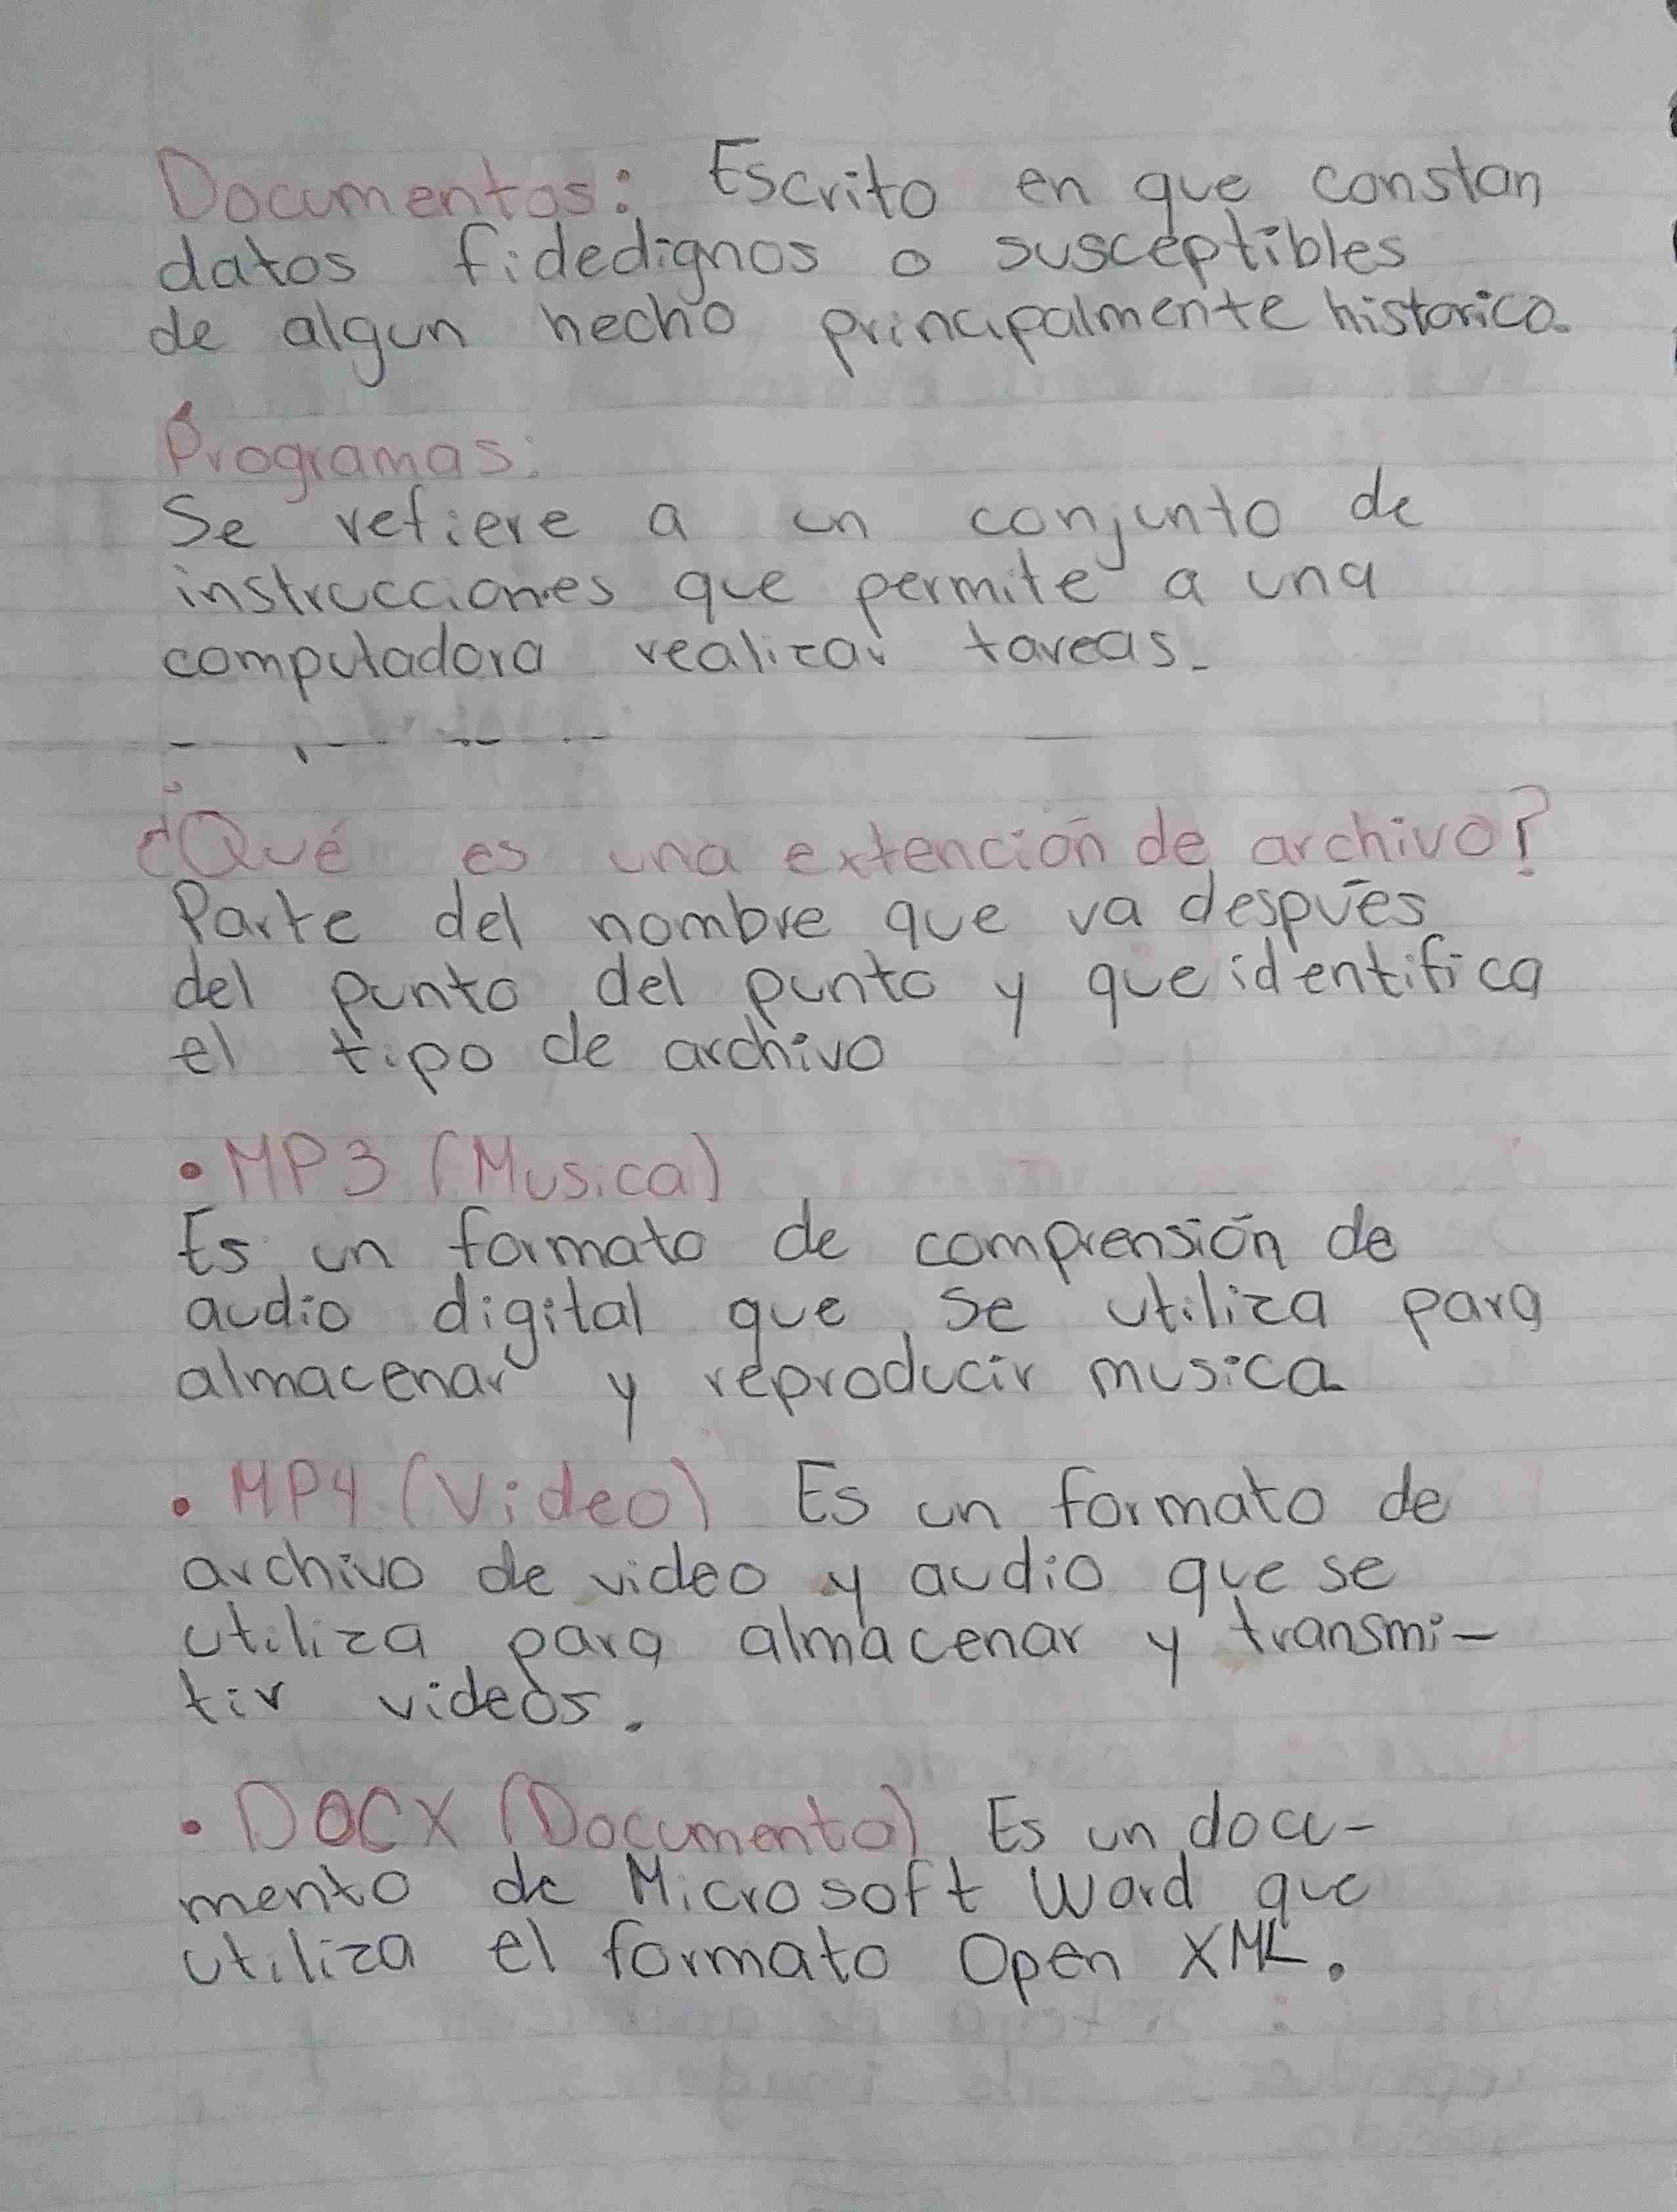 Documentos: Escrito en que constan
datos fidedignos o susceptibles
de algun hecho principalmente historico.
Programas:
Se refiere a un conjunto de
instrucciones que permite a una
computadora realizar tareas.
¿Qué es una extención de archivo?
Parte del nombre que va después
del punto del punto y que identifica
el tipo de archivo
• MP3 (Musica)
Es un formato de comprensión de
audio digital que se utiliza para
almacenar y reproducir musica
• MP4 (Video) Es un formato de
archivo de video y audio que se
utiliza para almacenar y transmi-
tir videos.
• DOCX (Documento) Es un docu-
mento de Microsoft Word que
utiliza el formato Open XML.